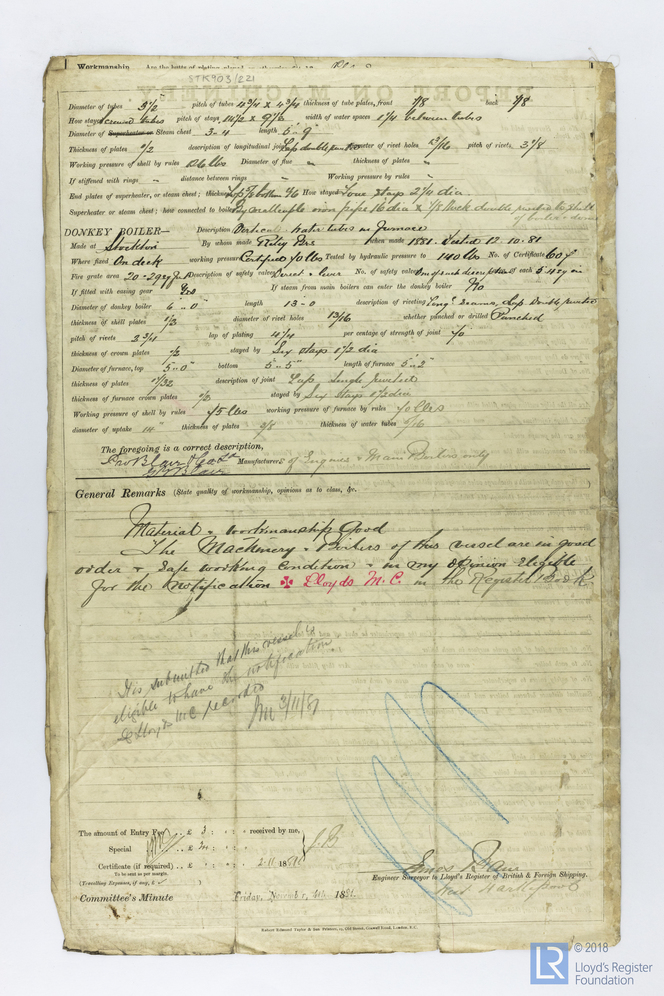 Workmanship Are the butts of plating
STK903/221
REPORT ON MACHINERY
Diameter of tubes 3½" pitch of tubes 4¾ x 4¾ thickness of tube plates, front 7/8 back 7/8
How stayed screwed tubes pitch of stays 14½ x 9½ width of water spaces 1¼ between tubes
Diameter of Superheater or Steam chest 3-4 length 5-9
Thickness of plates ½ description of longitudinal joint Lap double diameter of rivet holes 13/16 pitch of rivets 3⅛
Working pressure of shell by rules Diameter of flue thickness of plates
If stiffened with rings distance between rings Working pressure by rules
End plates of superheater, or steam chest; thickness How stayed stays 2⅛ dia
Superheater or steam chest; how connected to boiler By malleable iron pipe 16 dia x ⅞ thick double riveted to shell of boiler & dome
DONKEY BOILER— Description Vertical water tubes in furnace
Made at Stockton By whom made Riley Bros when made 1881. Tested 12.10.81
Where fixed On deck working pressure Certified 70 lbs Tested by hydraulic pressure to 140 lbs No. of Certificate 607
Fire grate area Description of safety valves Direct & lever No. of safety valves One of each description area of each
If fitted with easing gear Yes If steam from main boilers can enter the donkey boiler No
Diameter of donkey boiler 6'-0" length 13-0 description of riveting Long. seams, Lap Double riveted
thickness of shell plates ½ diameter of rivet holes 13/16 whether punched or drilled Punched
pitch of rivets 2¾ lap of plating 4¼ per centage of strength of joint 70
thickness of crown plates ½ stayed by Six stays 1½ dia
Diameter of furnace, top 5'-0" bottom 5'-5" length of furnace 5'-2"
thickness of plates 17/32 description of joint Lap Single riveted
thickness of furnace crown plates stayed by Six stays 1½ dia
Working pressure of shell by rules 75 lbs working pressure of furnace by rules 70 lbs
diameter of uptake 14" thickness of plates 3/8 thickness of water tubes 5/16
The foregoing is a correct description,
Blair & Co Ld Manufacturers of Engines & Main Boilers only
General Remarks (State quality of workmanship, opinions as to class, &c.
Material & workmanship Good
The Machinery & Boilers of this vessel are in good
order & safe working condition & in my opinion eligible
for the notification ✠ Lloyds M.C. in the Register Book
It is submitted that this vessel is
eligible to have the notification
✠ Lloyds MC recorded
3/11/81
The amount of Entry Fee .. £ 3 : received by me,
Special .. £
Certificate (if required) .. £ 2-11 1881
To be sent as per margin.
(Travelling Expenses, if any, £
Committee's Minute Friday, November 4th 1881.
Engineer Surveyor to Lloyd's Register of British & Foreign Shipping.
West Hartlepool
© 2018
LR
Lloyd's Register
Foundation